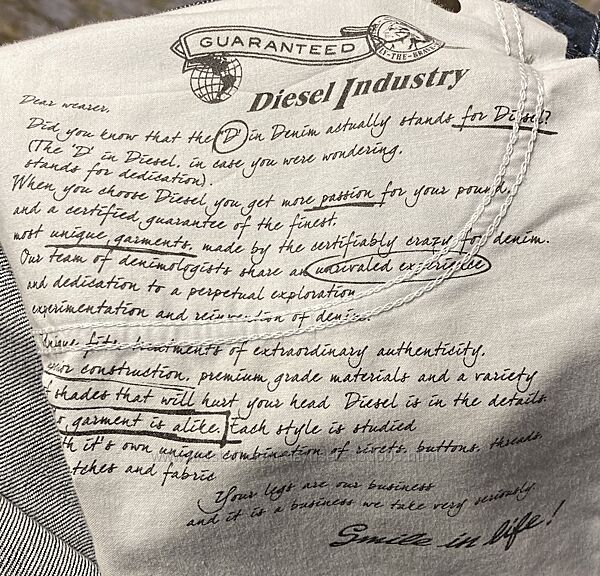 GUARANTEED
ONLY-THE-BRAVE
Diesel Industry
Dear wearer,
Did you know that the 'D' in Denim actually stands for Diesel?
(The 'D' in Diesel, in case you were wondering,
stands for dedication).
When you choose Diesel you get more passion for your pound,
and a certified guarantee of the finest,
most unique garments, made by the certifiably crazy for denim.
Our team of denimologists share an unrivaled experience
and dedication to a perpetual exploration
experimentation and reinvention of denim.
Unique fits, treatments of extraordinary authenticity,
construction, premium grade materials and a variety
shades that will hurt your head Diesel is in the details
garment is alike. Each style is studied
it's own unique combination of rivets, buttons, threads,
and fabric
Your legs are our business
and it is a business we take very seriously
Smile in life!